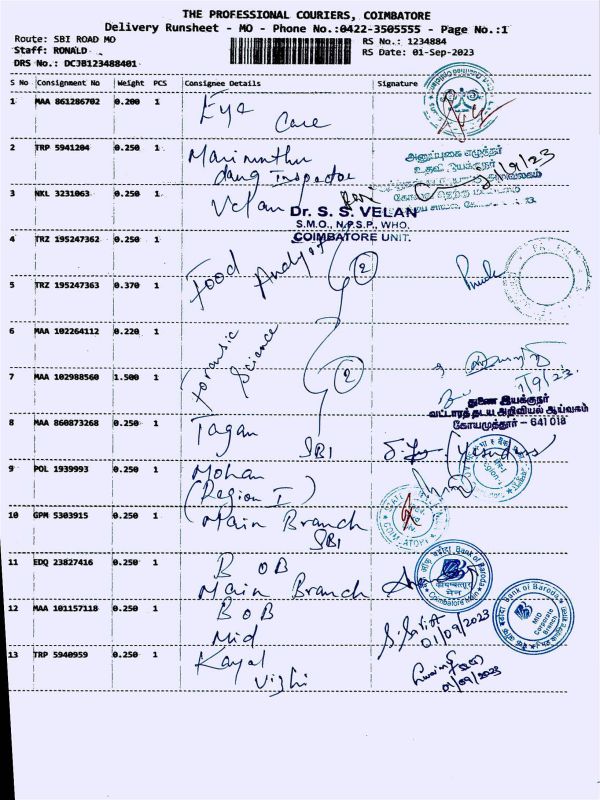 THE PROFESSIONAL COURIERS, COIMBATORE
Delivery Runsheet - MO - Phone No.:0422-3505555 - Page No.:1
Route: SBI ROAD MO
RS No.: 1234884
Staff: RONALD
RS Date: 01-Sep-2023
DRS No.: DCJB123488401
S No Consignment No Weight PCS Consignee Details Signature
1 MAA 861286702 0.200 1 Eye Care
2 TRP 5941204 0.250 1 Marimuthu
drug Inspector
அனுப்புகை எழுத்தர்
1/9/23
3 NKL 3231063 0.250 1 Velan
Dr. S. S. VELAN
S.M.O., N.P.S.P., WHO,
COIMBATORE UNIT.
4 TRZ 195247362 0.250 1 Food Analyst
2
5 TRZ 195247363 0.370 1
6 MAA 102264112 0.220 1 Forensic Science
7 MAA 102988560 1.500 1
2
1/9/23
துணை இயக்குநர்
வட்டாரத் தடய அறிவியல் ஆய்வகம்
கோயமுத்தூர் – 641 018
8 MAA 860873268 0.250 1 Tagan
SBI
9 POL 1939993 0.250 1 Mohan
(Region I)
10 GPM 5303915 0.250 1 Main Branch
SBI
11 EDQ 23827416 0.250 1 BOB
Main Branch
Bank of Baroda
Coimbatore Main
12 MAA 101157118 0.250 1 BOB
Mid
Bank of Baroda
MID Corporate Branch
01/09/2023
13 TRP 5940959 0.250 1 Kayal
Vizhi
01/09/2023